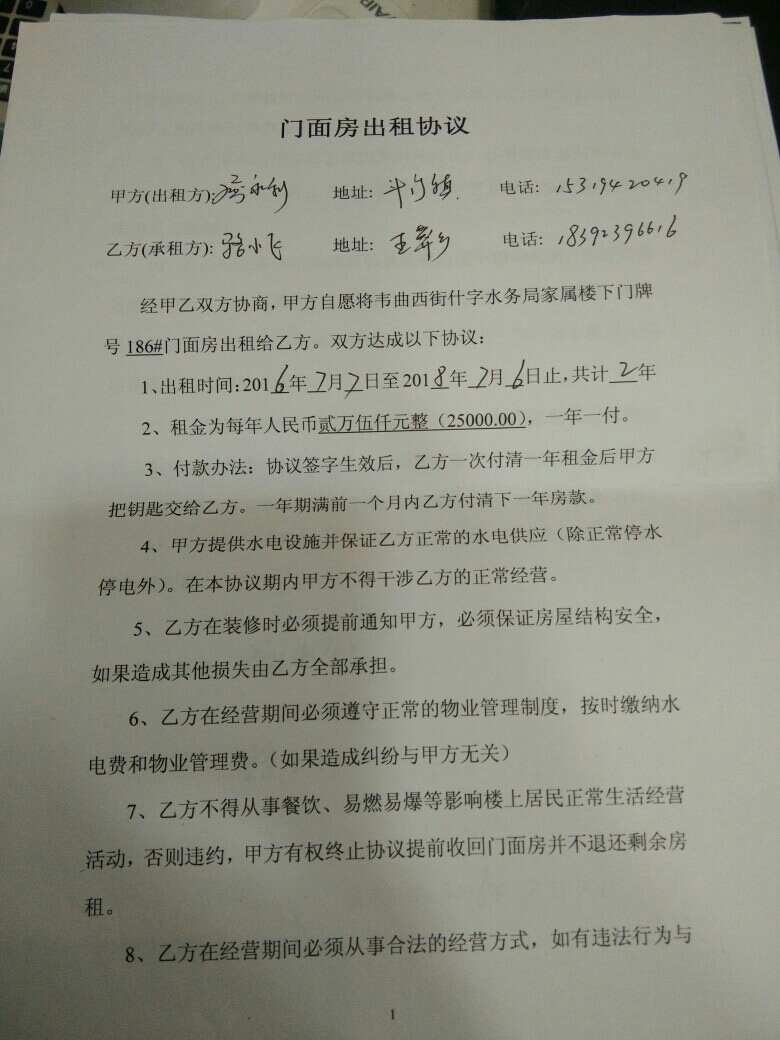 门面房出租协议
甲方(出租方): 地址: 斗门镇. 电话: 15319420419
乙方(承租方): 骆小飞 地址: 王莽乡 电话: 18392396616
经甲乙双方协商，甲方自愿将韦曲西街什字水务局家属楼下门牌
号186#门面房出租给乙方。双方达成以下协议：
1、出租时间:2016年7月7日至2018年7月6日止,共计2年
2、租金为每年人民币贰万伍仟元整（25000.00），一年一付。
3、付款办法：协议签字生效后，乙方一次付清一年租金后甲方
把钥匙交给乙方。一年期满前一个月内乙方付清下一年房款。
4、甲方提供水电设施并保证乙方正常的水电供应（除正常停水
停电外）。在本协议期内甲方不得干涉乙方的正常经营。
5、乙方在装修时必须提前通知甲方，必须保证房屋结构安全，
如果造成其他损失由乙方全部承担。
6、乙方在经营期间必须遵守正常的物业管理制度，按时缴纳水
电费和物业管理费。（如果造成纠纷与甲方无关）
7、乙方不得从事餐饮、易燃易爆等影响楼上居民正常生活经营
活动，否则违约，甲方有权终止协议提前收回门面房并不退还剩余房
租。
8、乙方在经营期间必须从事合法的经营方式，如有违法行为与
1